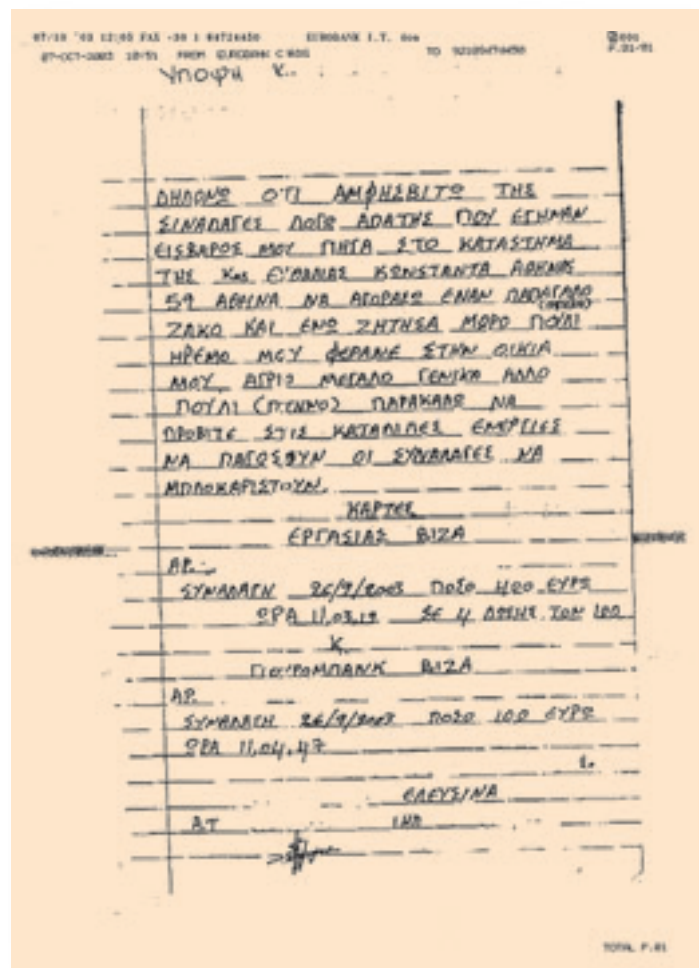 07/10 '03 12:05 FAX -30 1 84724450 EUROBANK I.T. 001
07-OCT-2003 10:51 FROM EUROBANK CARDS TO F.01-01
ΥΠΟΦΗ Κ.
ΔΗΛΩΝΩ ΟΤΙ ΑΜΦΗΣΒΙΤΩ ΤΗΣ
ΣΙΝΑΛΑΓΕΣ ΛΟΓΩ ΑΠΑΤΗΣ ΠΟΥ ΕΓΗΝΑΝ
ΕΙΣΒΑΡΟΣ ΜΟΥ ΠΗΓΑ ΣΤΟ ΚΑΤΑΣΤΗΜΑ
ΤΗΣ Κας ΚΩΝΣΤΑΝΤΑ ΑΘΗΝΑΣ
59 ΑΘΗΝΑ ΝΑ ΑΓΟΡΑΣΩ ΕΝΑΝ ΠΑΠΑΓΑΛΟ
ΖΑΚΟ ΚΑΙ ΕΝΩ ΖΗΤΗΣΑ ΜΩΡΟ ΠΟΥΛΙ
ΗΡΕΜΟ ΜΟΥ ΦΕΡΑΝΕ ΣΤΗΝ ΟΙΚΙΑ
ΜΟΥ ΑΓΡΙΟ ΜΕΓΑΛΟ ΓΕΝΙΚΑ ΑΛΛΟ
ΠΟΥΛΙ (ΠΤΗΝΟ) ΠΑΡΑΚΑΛΩ ΝΑ
ΠΡΟΒΙΤΕ ΣΤΙΣ ΚΑΤΑΛΙΛΕΣ ΕΝΕΡΓΙΕΣ
ΝΑ ΠΑΓΟΣΟΥΝ ΟΙ ΣΥΝΑΛΑΓΕΣ ΝΑ
ΜΠΛΟΚΑΡΙΣΤΟΥΝ.
ΚΑΡΤΕΣ
ΕΡΓΑΣΙΑΣ ΒΙΖΑ
ΑΡ.
ΣΥΝΑΛΑΓΗ 26/9/2003 ΠΟΣΟ 400 ΕΥΡΩ
ΩΡΑ 11,03,12 ΣΕ 4 ΔΟΣΗΣ ΤΩΝ 100
Κ.
ΓΙΟΥΡΟΜΠΑΝΚ ΒΙΖΑ
ΑΡ.
ΣΥΝΑΛΑΓΗ 26/9/2003 ΠΟΣΟ 100 ΕΥΡΩ
ΩΡΑ 11,04,47
ΕΛΕΥΣΙΝΑ
Α.Τ
TOTAL P.01